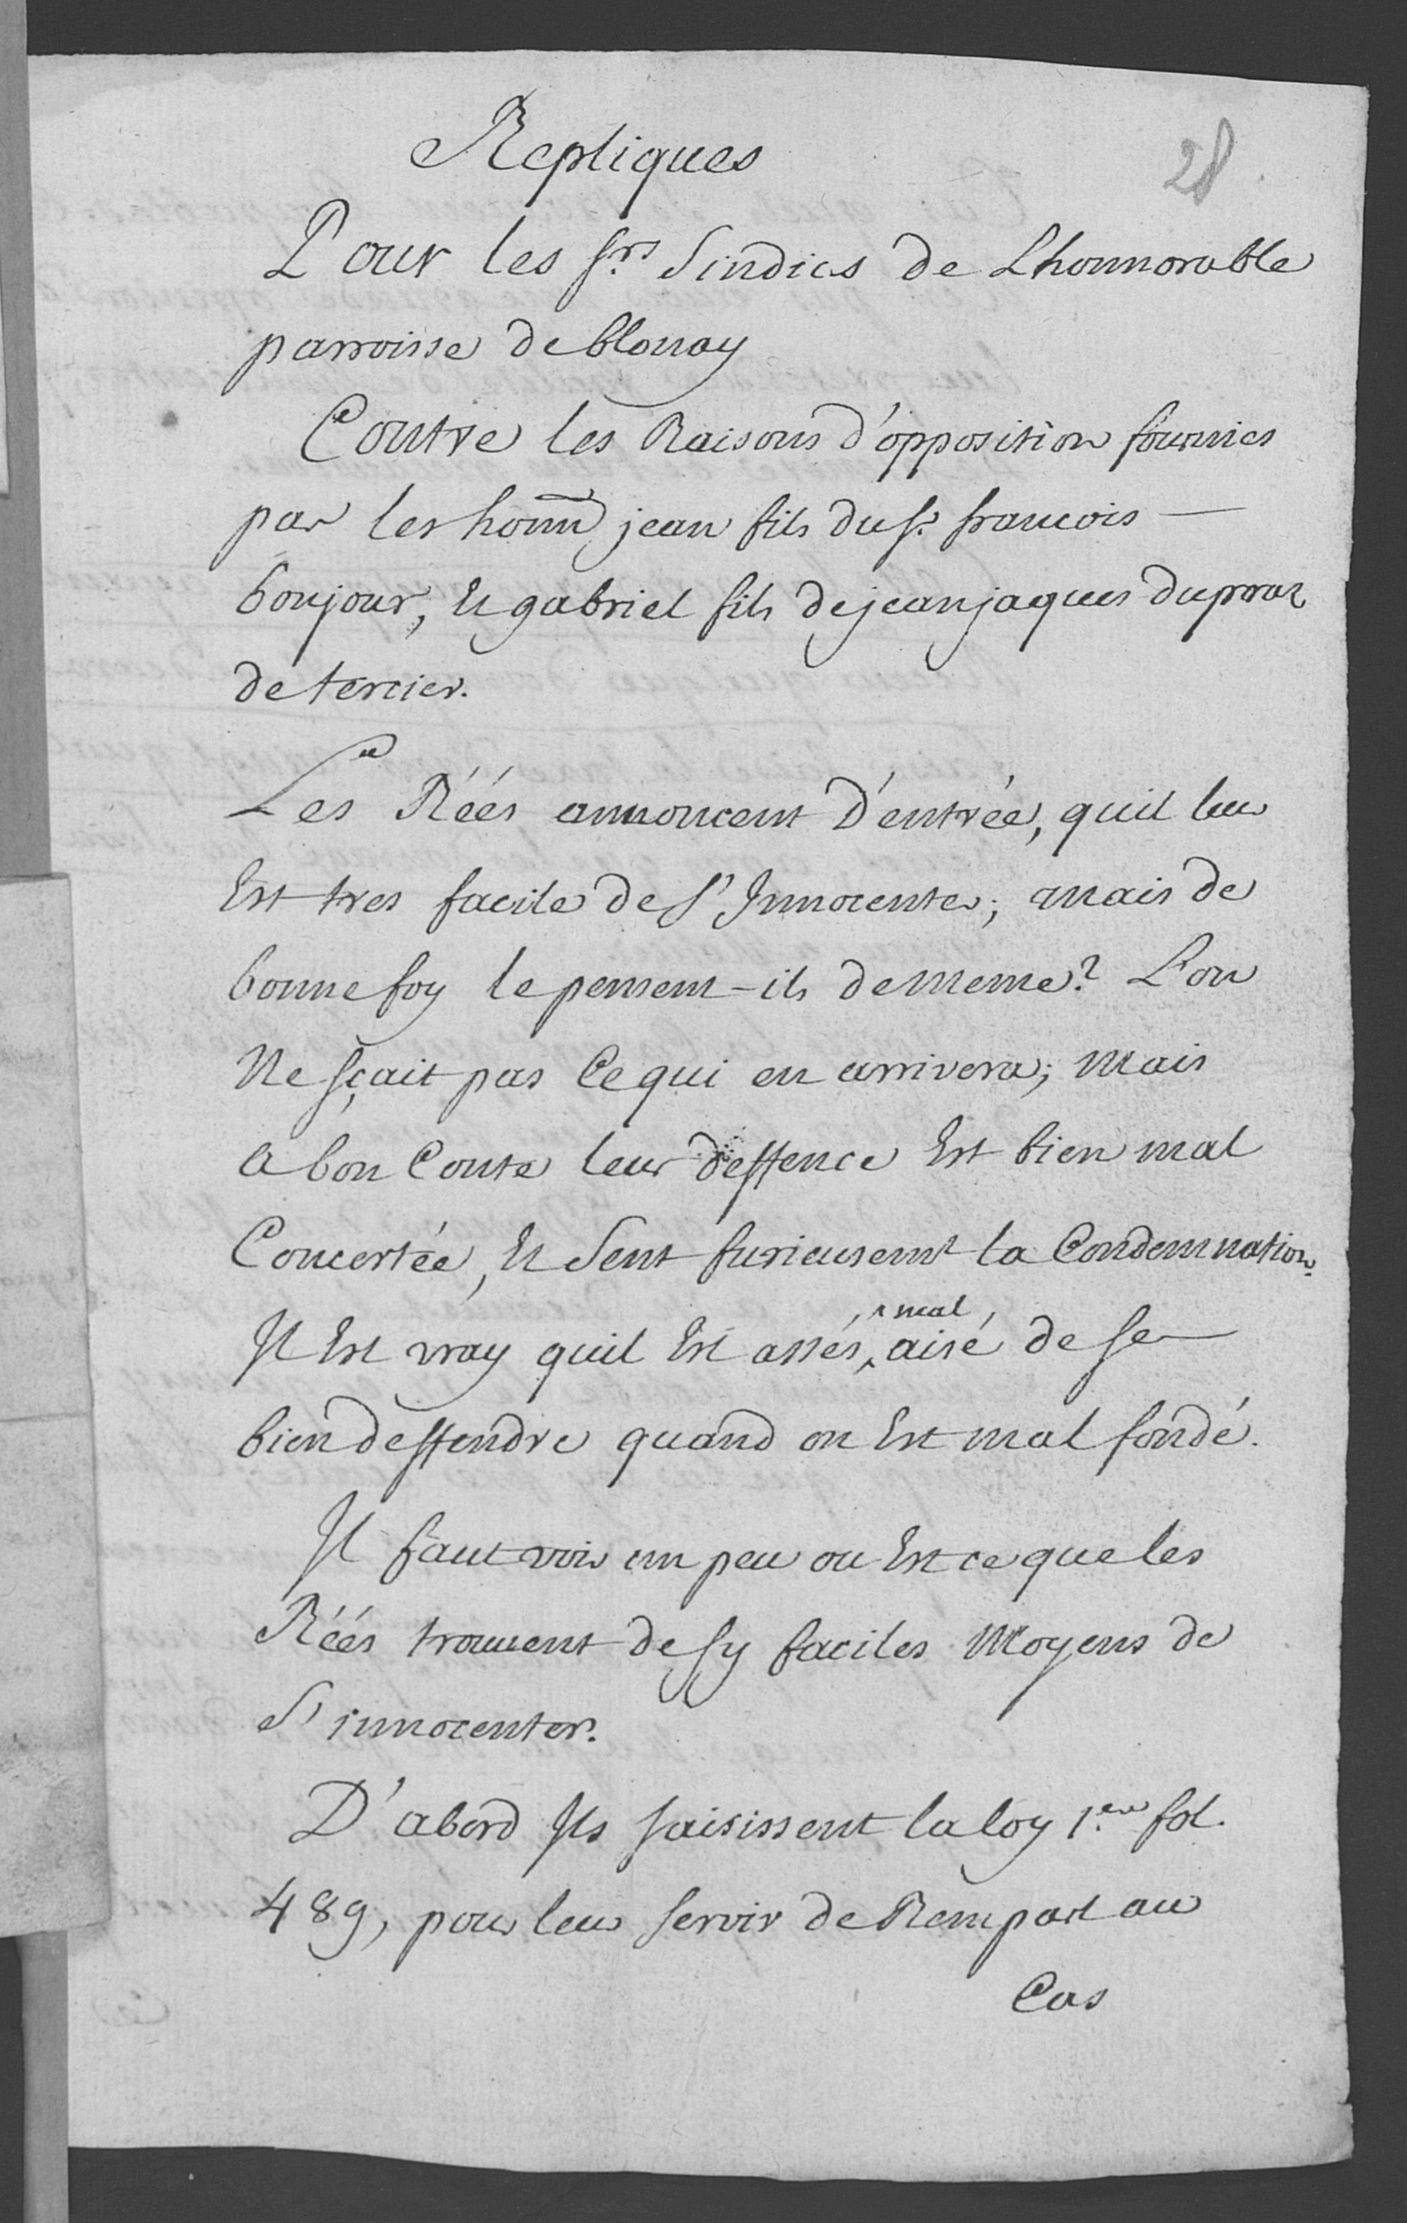 28
Repliques
Pour les Srs Sindics de Lhonnorable
parroisse de blonay
Contre les Raisons d'opposition fournies
par les honn jean fils du Sr. francois
bonjour, Et gabriel fils de jean jaques dupraz
de tercier.
Les Réés annoncent D'entrée, quil leur
Est tres facile de S'Innocenter; mais de
bonne foy le pensent-ils de meme? L'on
Ne sçait pas Ce qui en arrivera; Mais
a bon Conte leur deffence Est bien mal
Concertée, Et Sent furieusemt la Condemnation.
Il Est vray quil Est assés mal aisé de se
bien deffendre quand on Est mal fondé.
Il faut voir un peu ou Est ce que les
Réés trouvent de sy faciles Moyens de
S'innocenter.
D'abord Ils saisissent la loy 1.ere fol.
489, pour leur servir de Rempart au
Cas